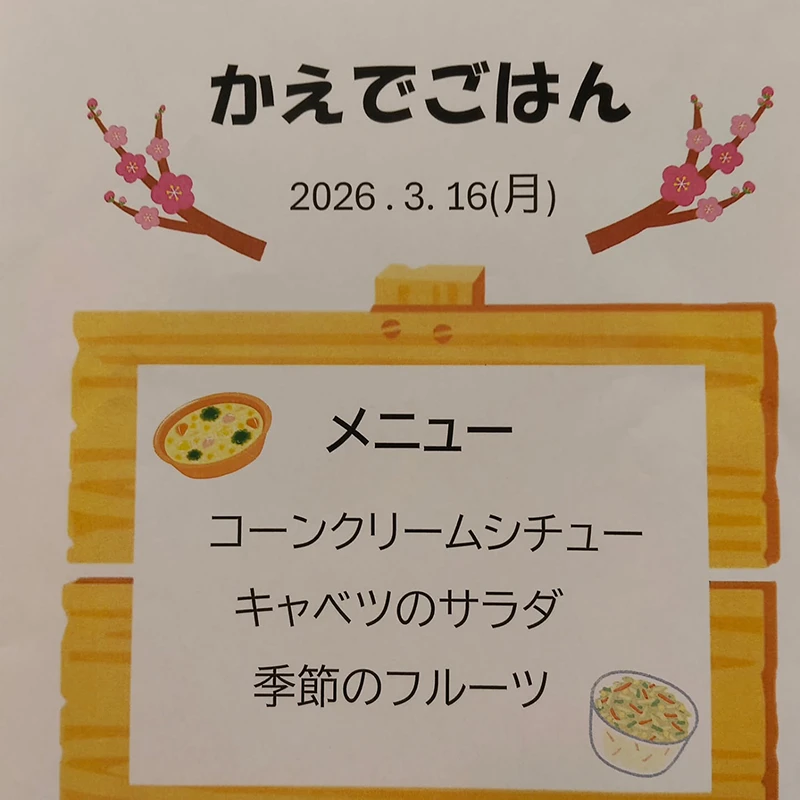 かえでごはん
2026.3.16(月)
メニュー
コーンクリームシチュー
キャベツのサラダ
季節のフルーツ